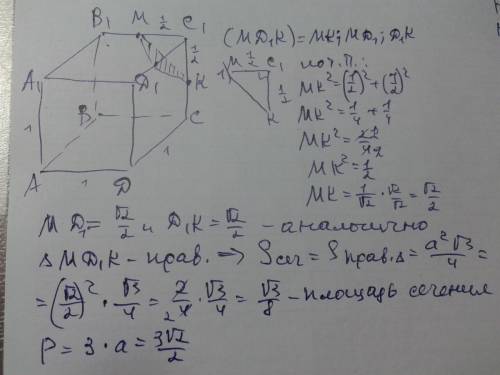 B₁ M ½ C₁
½
A₁ D₁ K
1 B C
A 1 D 1
(MD₁K) = MK; MD₁; D₁K
M ½ C₁
½
K
по т.П.:
MK² = (½)² + (½)²
MK² = ¼ + ¼
MK² = 2/4
MK² = ½
MK = 1/√2 · √2/√2 = √2/2
MD₁ = √2/2 и D₁K = √2/2 - аналогично
Δ MD₁K - прав. => Sсеч = Sправ.Δ = a²√3/4 =
= (√2/2)² · √3/4 = 2/4 · √3/4 = √3/8 - площадь сечения
P = 3 · a = 3√2/2